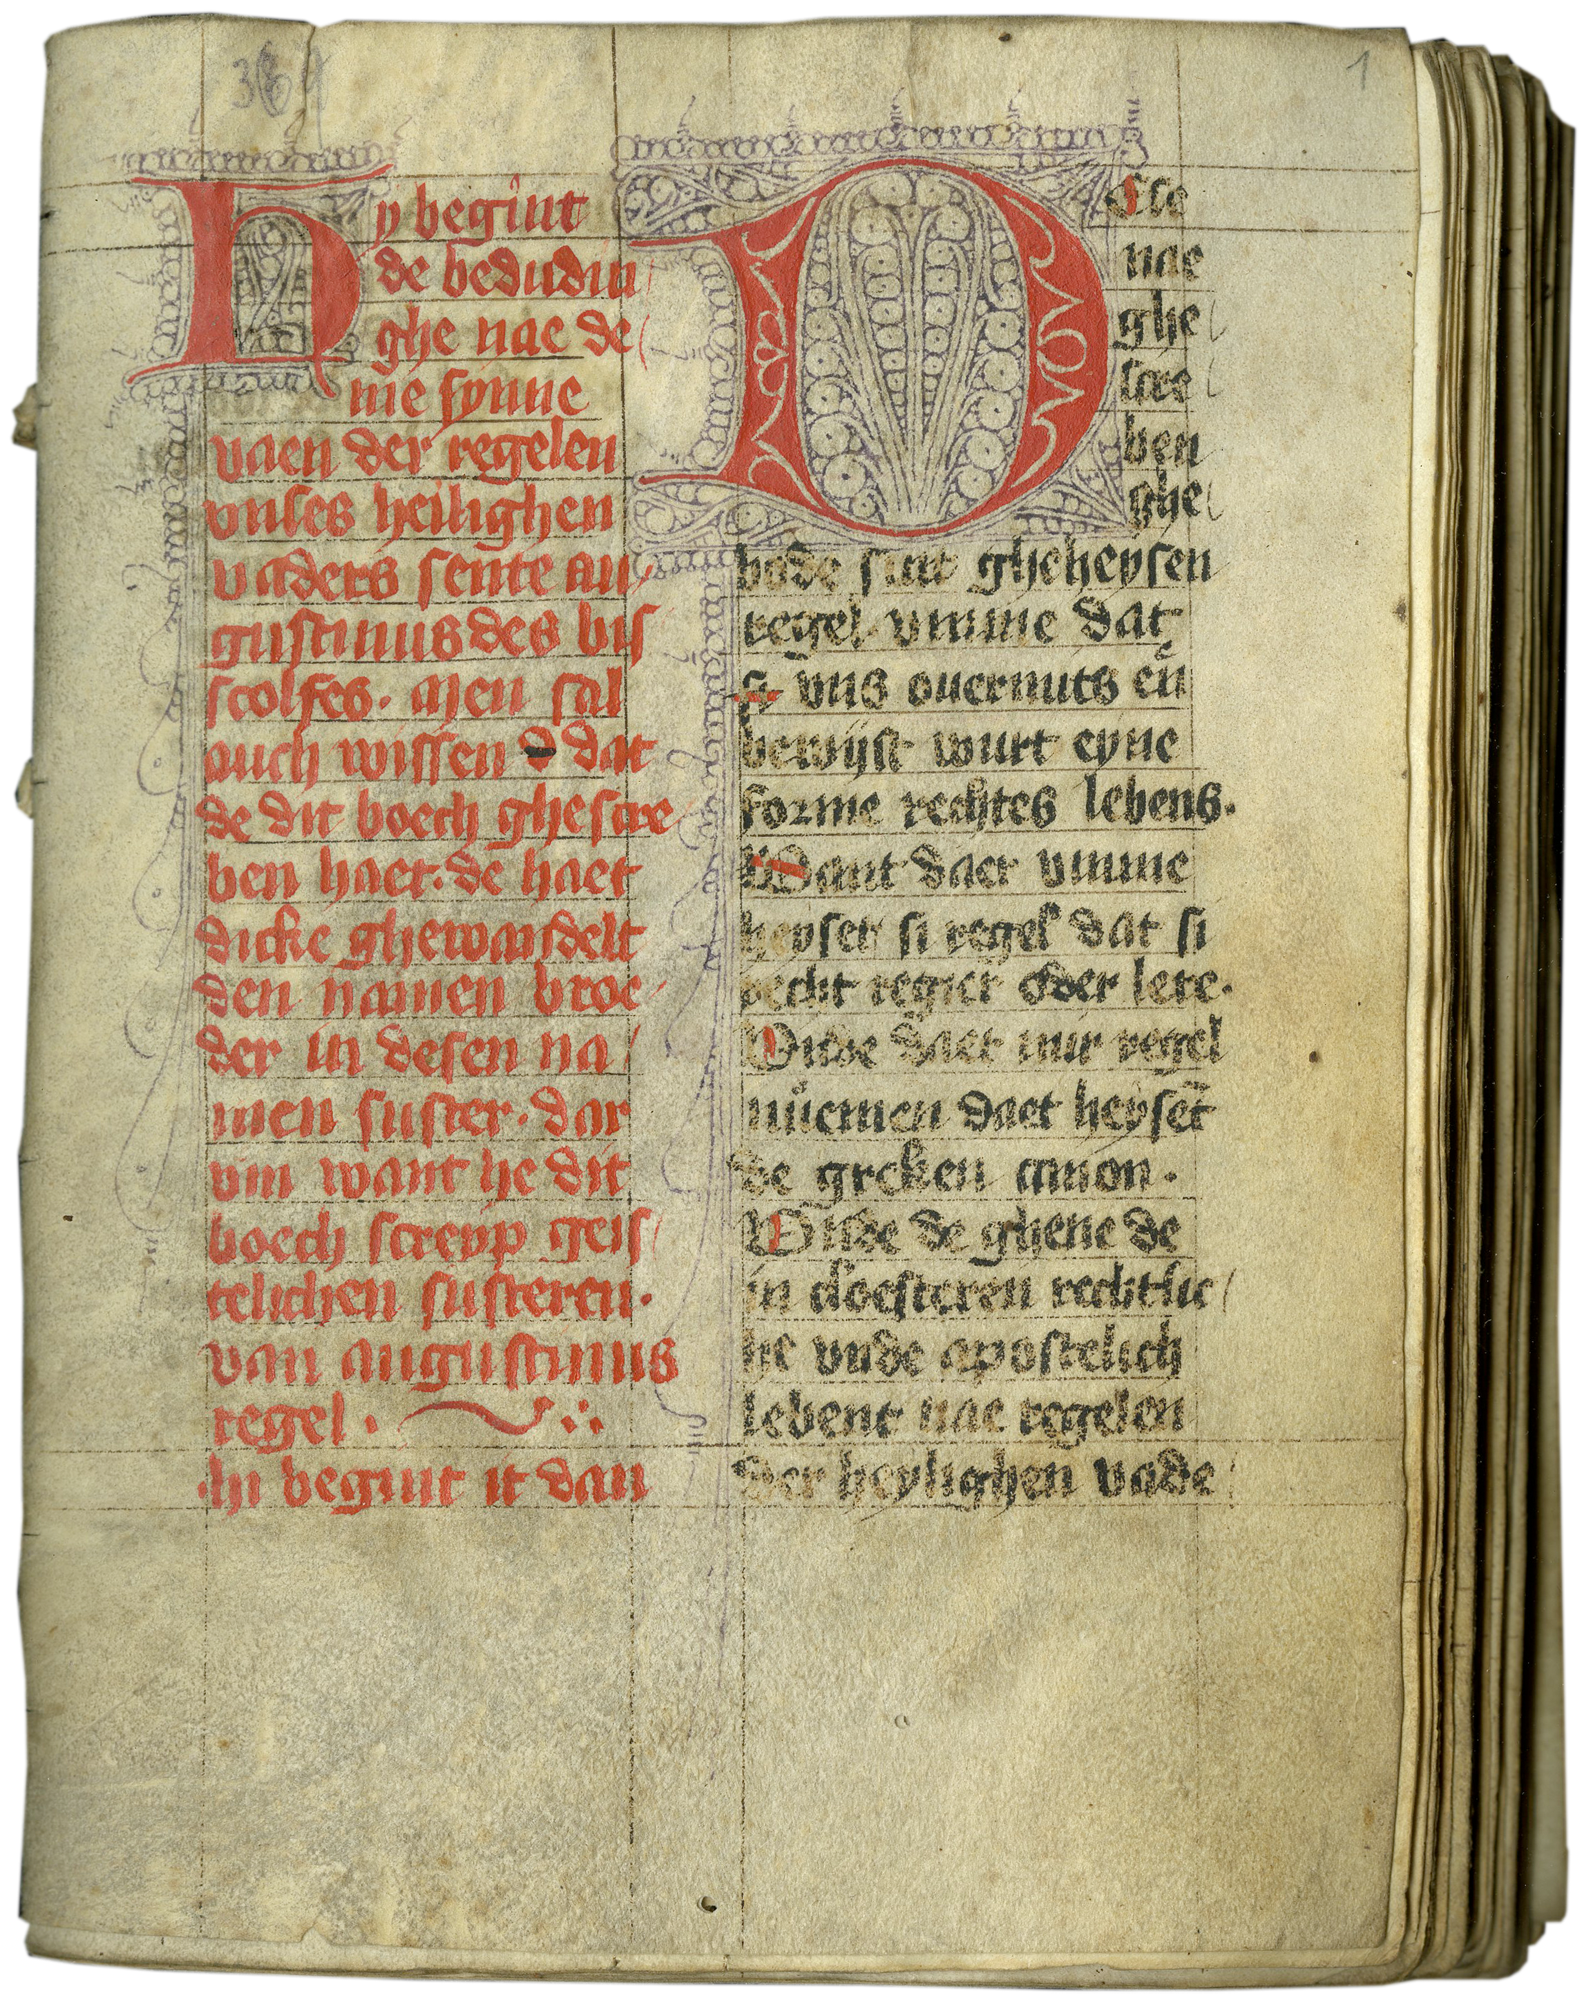 364
1
Hy begint
de bedudin
ghe nae de
me synne
vaen der regelen
vnses heilighen
vaders sente au
gustinus des bis
scolfes. Men sal
auch wissen d dat
de dit boech ghescre
ben haet. de haet
dicke ghewandelt
den namen broe
der in desen na
men suster. dar
vm want he dit
boech screyp geis
telichen susteren.
van augustinus
regel.
Hi begint it dan
Dese
nae
ghe
scre
ben
ghe
bode sint gheheysen
regel. vmme dat
si vns ouermits eñ
bewijst wurt eyne
forme rechtes lebens.
Want daer vmme
heyset si regel dat si
recht regiert oder lere.
Vnde daet wir regel
nůemen daet heyset̄
de greken canon.
Vnde de ghene de
in cloesteren rechtlic
he vnde apostelich
lebent nae regelen
der heylighen vade